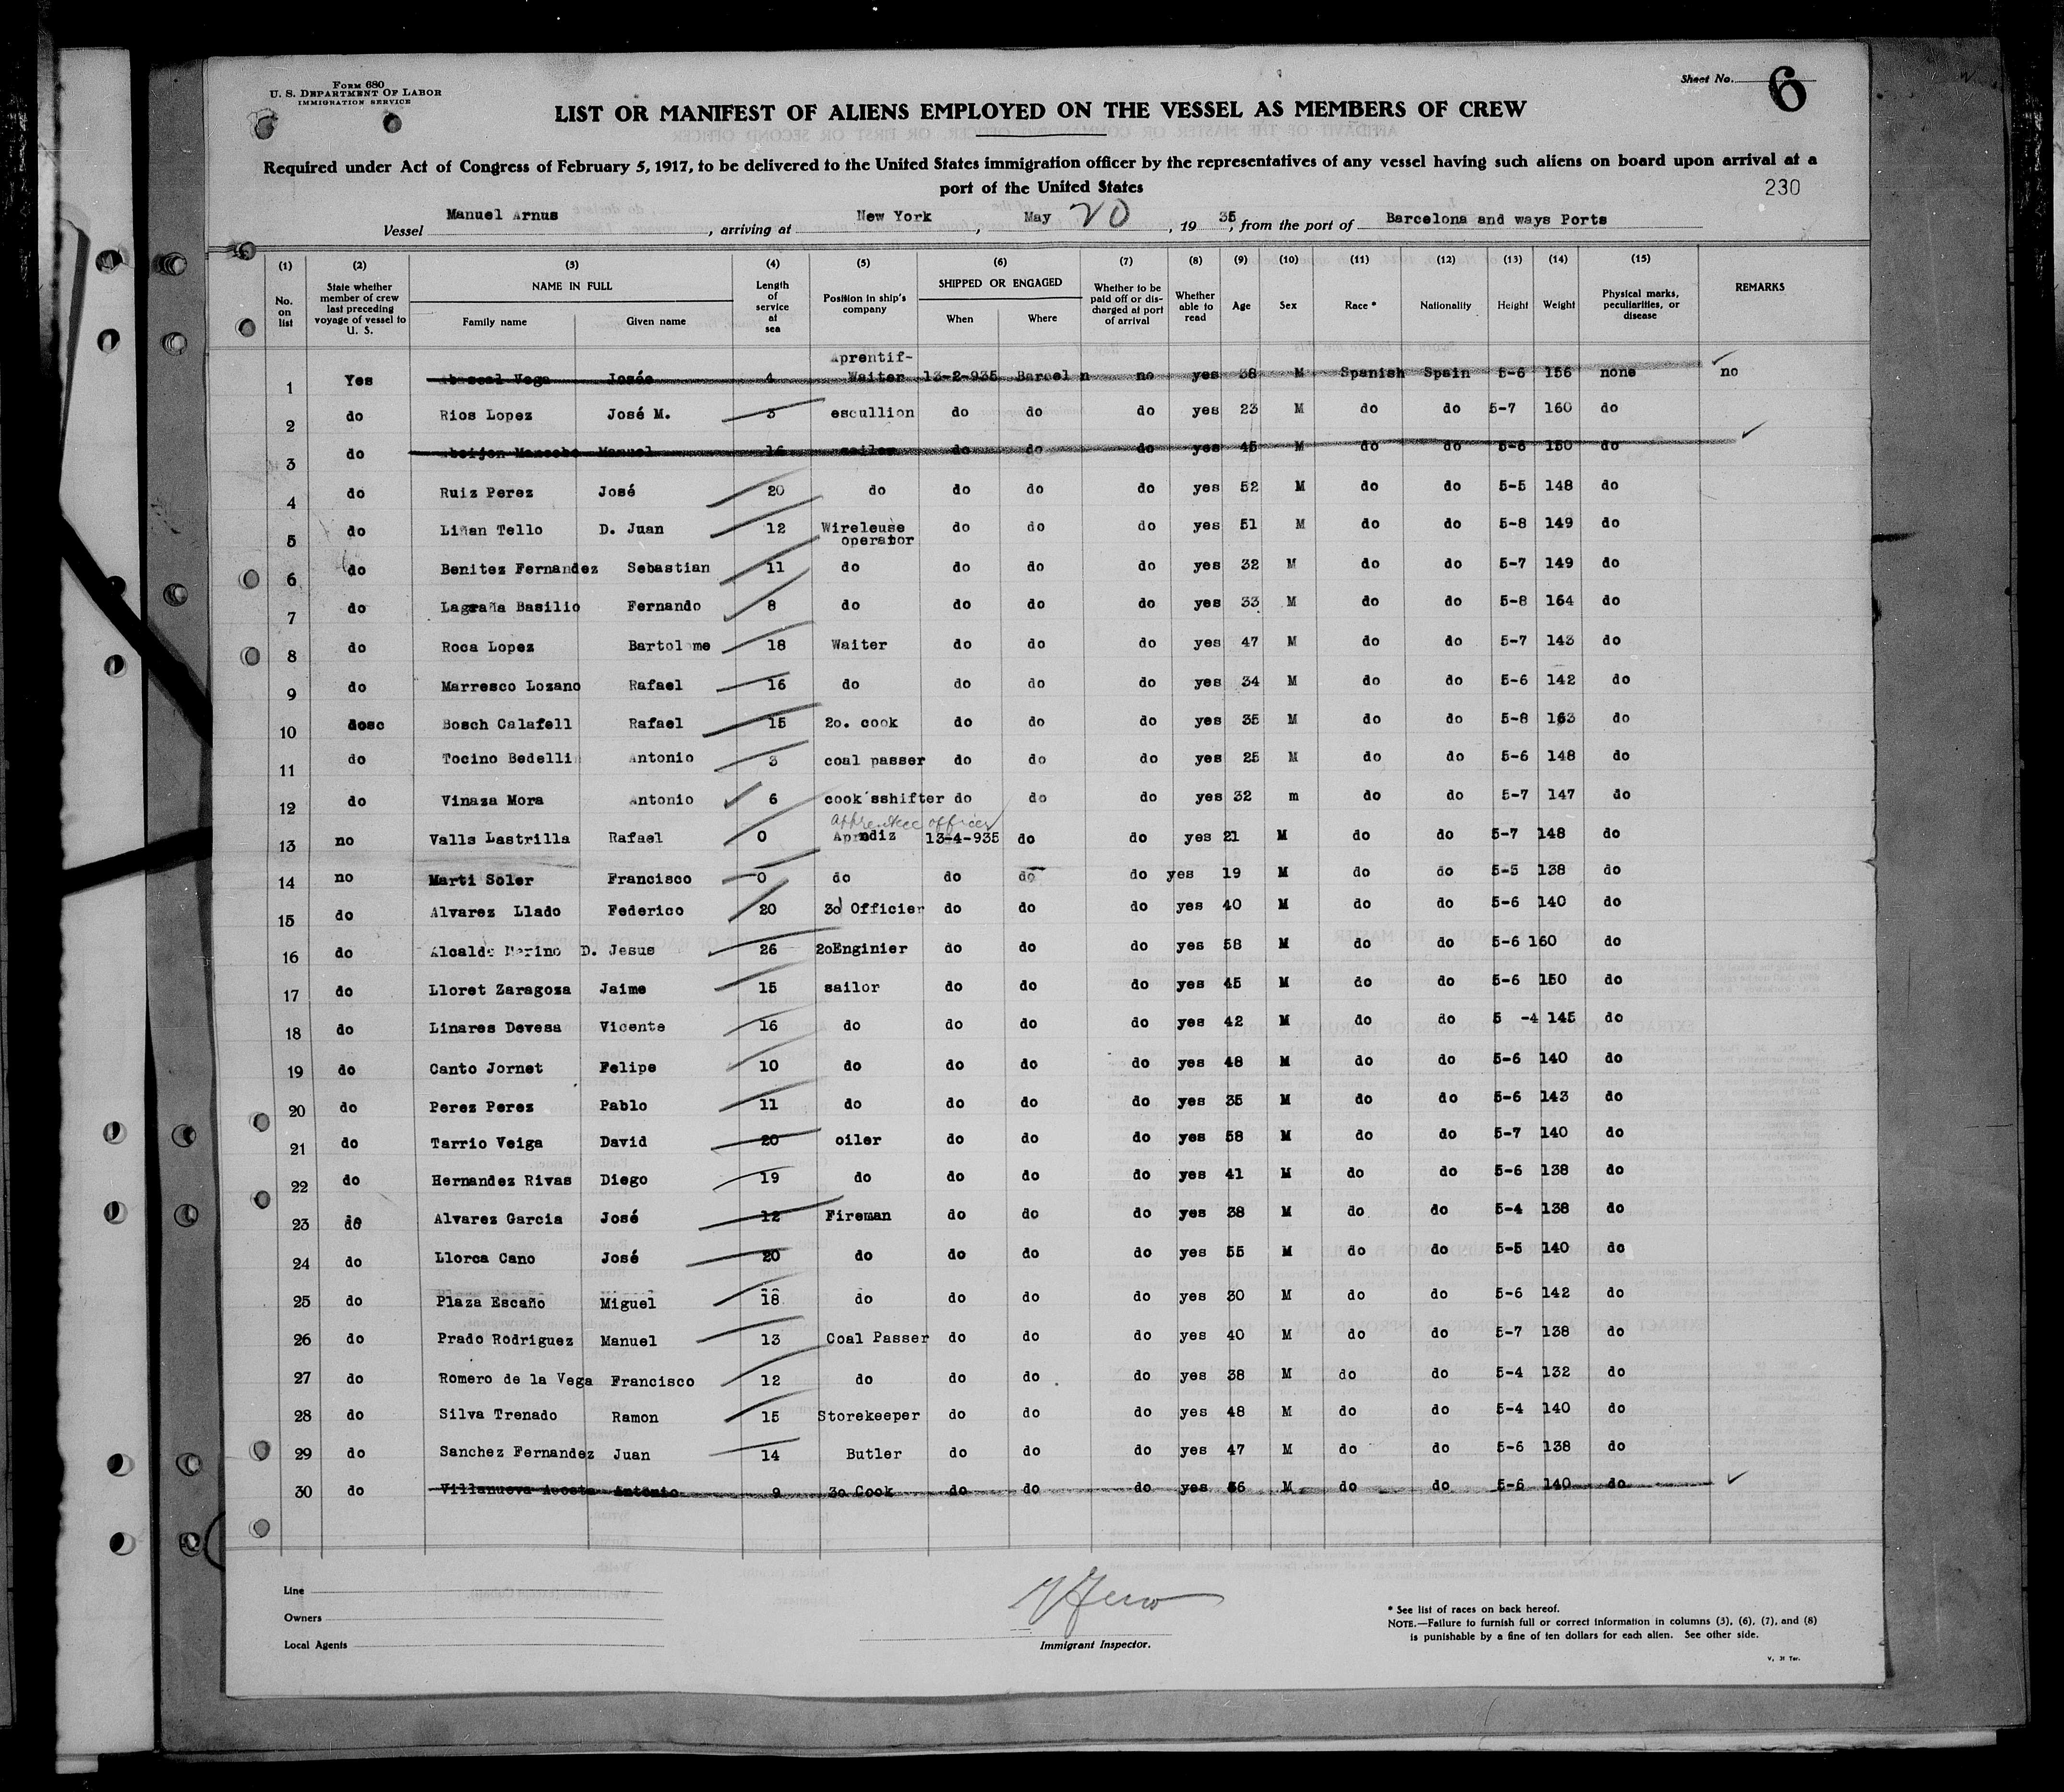 Form 680
U. S. Department Of Labor
IMMIGRATION SERVICE
Sheet No. 6
LIST OR MANIFEST OF ALIENS EMPLOYED ON THE VESSEL AS MEMBERS OF CREW
Required under Act of Congress of February 5, 1917, to be delivered to the United States immigration officer by the representatives of any vessel having such aliens on board upon arrival at a
port of the United States
230
Vessel Manuel Arnus, arriving at New York, May 20, 1935, from the port of Barcelona and ways Ports
(1) (2) (3) (4) (5) (6) (7) (8) (9) (10) (11) (12) (13) (14) (15)
No. on list State whether member of crew last preceding voyage of vessel to U. S. NAME IN FULL Family name Given name Length of service at sea Position in ship's company SHIPPED OR ENGAGED When Where Whether to be paid off or discharged at port of arrival Whether able to read Age Sex Race * Nationality Height Weight Physical marks, peculiarities, or disease REMARKS
Aprentif-
1 Yes Vega Josée 4 Waiter 13-2-935 Barcel n no yes 38 M Spanish Spain 5-6 156 none no
2 do Rios Lopez José M. 3 escullion do do do yes 23 M do do 5-7 160 do
3 do Manuel 16 sailor do do do yes 45 M do do 5-8 150 do
4 do Ruiz Perez José 20 do do do do yes 52 M do do 5-5 148 do
5 do Liñan Tello D. Juan 12 Wireleuse operator do do do yes 51 M do do 5-8 149 do
6 do Benitez Fernandez Sebastian 11 do do do do yes 32 M do do 5-7 149 do
7 do Lagraña Basilio Fernando 8 do do do do yes 33 M do do 5-8 164 do
8 do Roca Lopez Bartolome 18 Waiter do do do yes 47 M do do 5-7 143 do
9 do Marresco Lozano Rafael 16 do do do do yes 34 M do do 5-6 142 do
10 dosc Bosch Calafell Rafael 15 2o. cook do do do yes 35 M do do 5-8 163 do
11 do Tocino Bedellin Antonio 3 coal passer do do do yes 25 M do do 5-6 148 do
12 do Vinaza Mora Antonio 6 cook'sshifter do do do yes 32 m do do 5-7 147 do
apprentice officer
13 no Valls Lastrilla Rafael 0 Aprndiz 13-4-935 do do yes 21 M do do 5-7 148 do
14 no Marti Soler Francisco 0 do do do do yes 19 M do do 5-5 138 do
15 do Alvarez Llado Federico 20 3d Officier do do do yes 40 M do do 5-6 140 do
16 do Alcalde Merino D. Jesus 26 2oEnginier do do do yes 58 M do do 5-6 160 do
17 do Lloret Zaragoza Jaime 15 sailor do do do yes 45 M do do 5-6 150 do
18 do Linares Devesa Vicente 16 do do do do yes 42 M do do 5 -4 145 do
19 do Canto Jornet Felipe 10 do do do do yes 48 M do do 5-6 140 do
20 do Perez Perez Pablo 11 do do do do yes 35 M do do 5-6 143 do
21 do Tarrio Veiga David 20 oiler do do do yes 58 M do do 5-7 140 do
22 do Hernandez Rivas Diego 19 do do do do yes 41 M do do 5-6 138 do
23 do Alvarez Garcia José 12 Fireman do do do yes 38 M do do 5-4 138 do
24 do Llorca Cano José 20 do do do do yes 55 M do do 5-5 140 do
25 do Plaza Escaño Miguel 18 do do do do yes 30 M do do 5-6 142 do
26 do Prado Rodriguez Manuel 13 Coal Passer do do do yes 40 M do do 5-7 138 do
27 do Romero de la Vega Francisco 12 do do do do yes 38 M do do 5-4 132 do
28 do Silva Trenado Ramon 15 Storekeeper do do do yes 48 M do do 5-4 140 do
29 do Sanchez Fernandez Juan 14 Butler do do do yes 47 M do do 5-6 138 do
30 do Villanueva Acosta Antonio 9 3o Cook do do do yes 36 M do do 5-6 140 do
Line
Owners
Local Agents
Immigrant Inspector.
* See list of races on back hereof.
NOTE.—Failure to furnish full or correct information in columns (3), (6), (7), and (8)
is punishable by a fine of ten dollars for each alien. See other side.